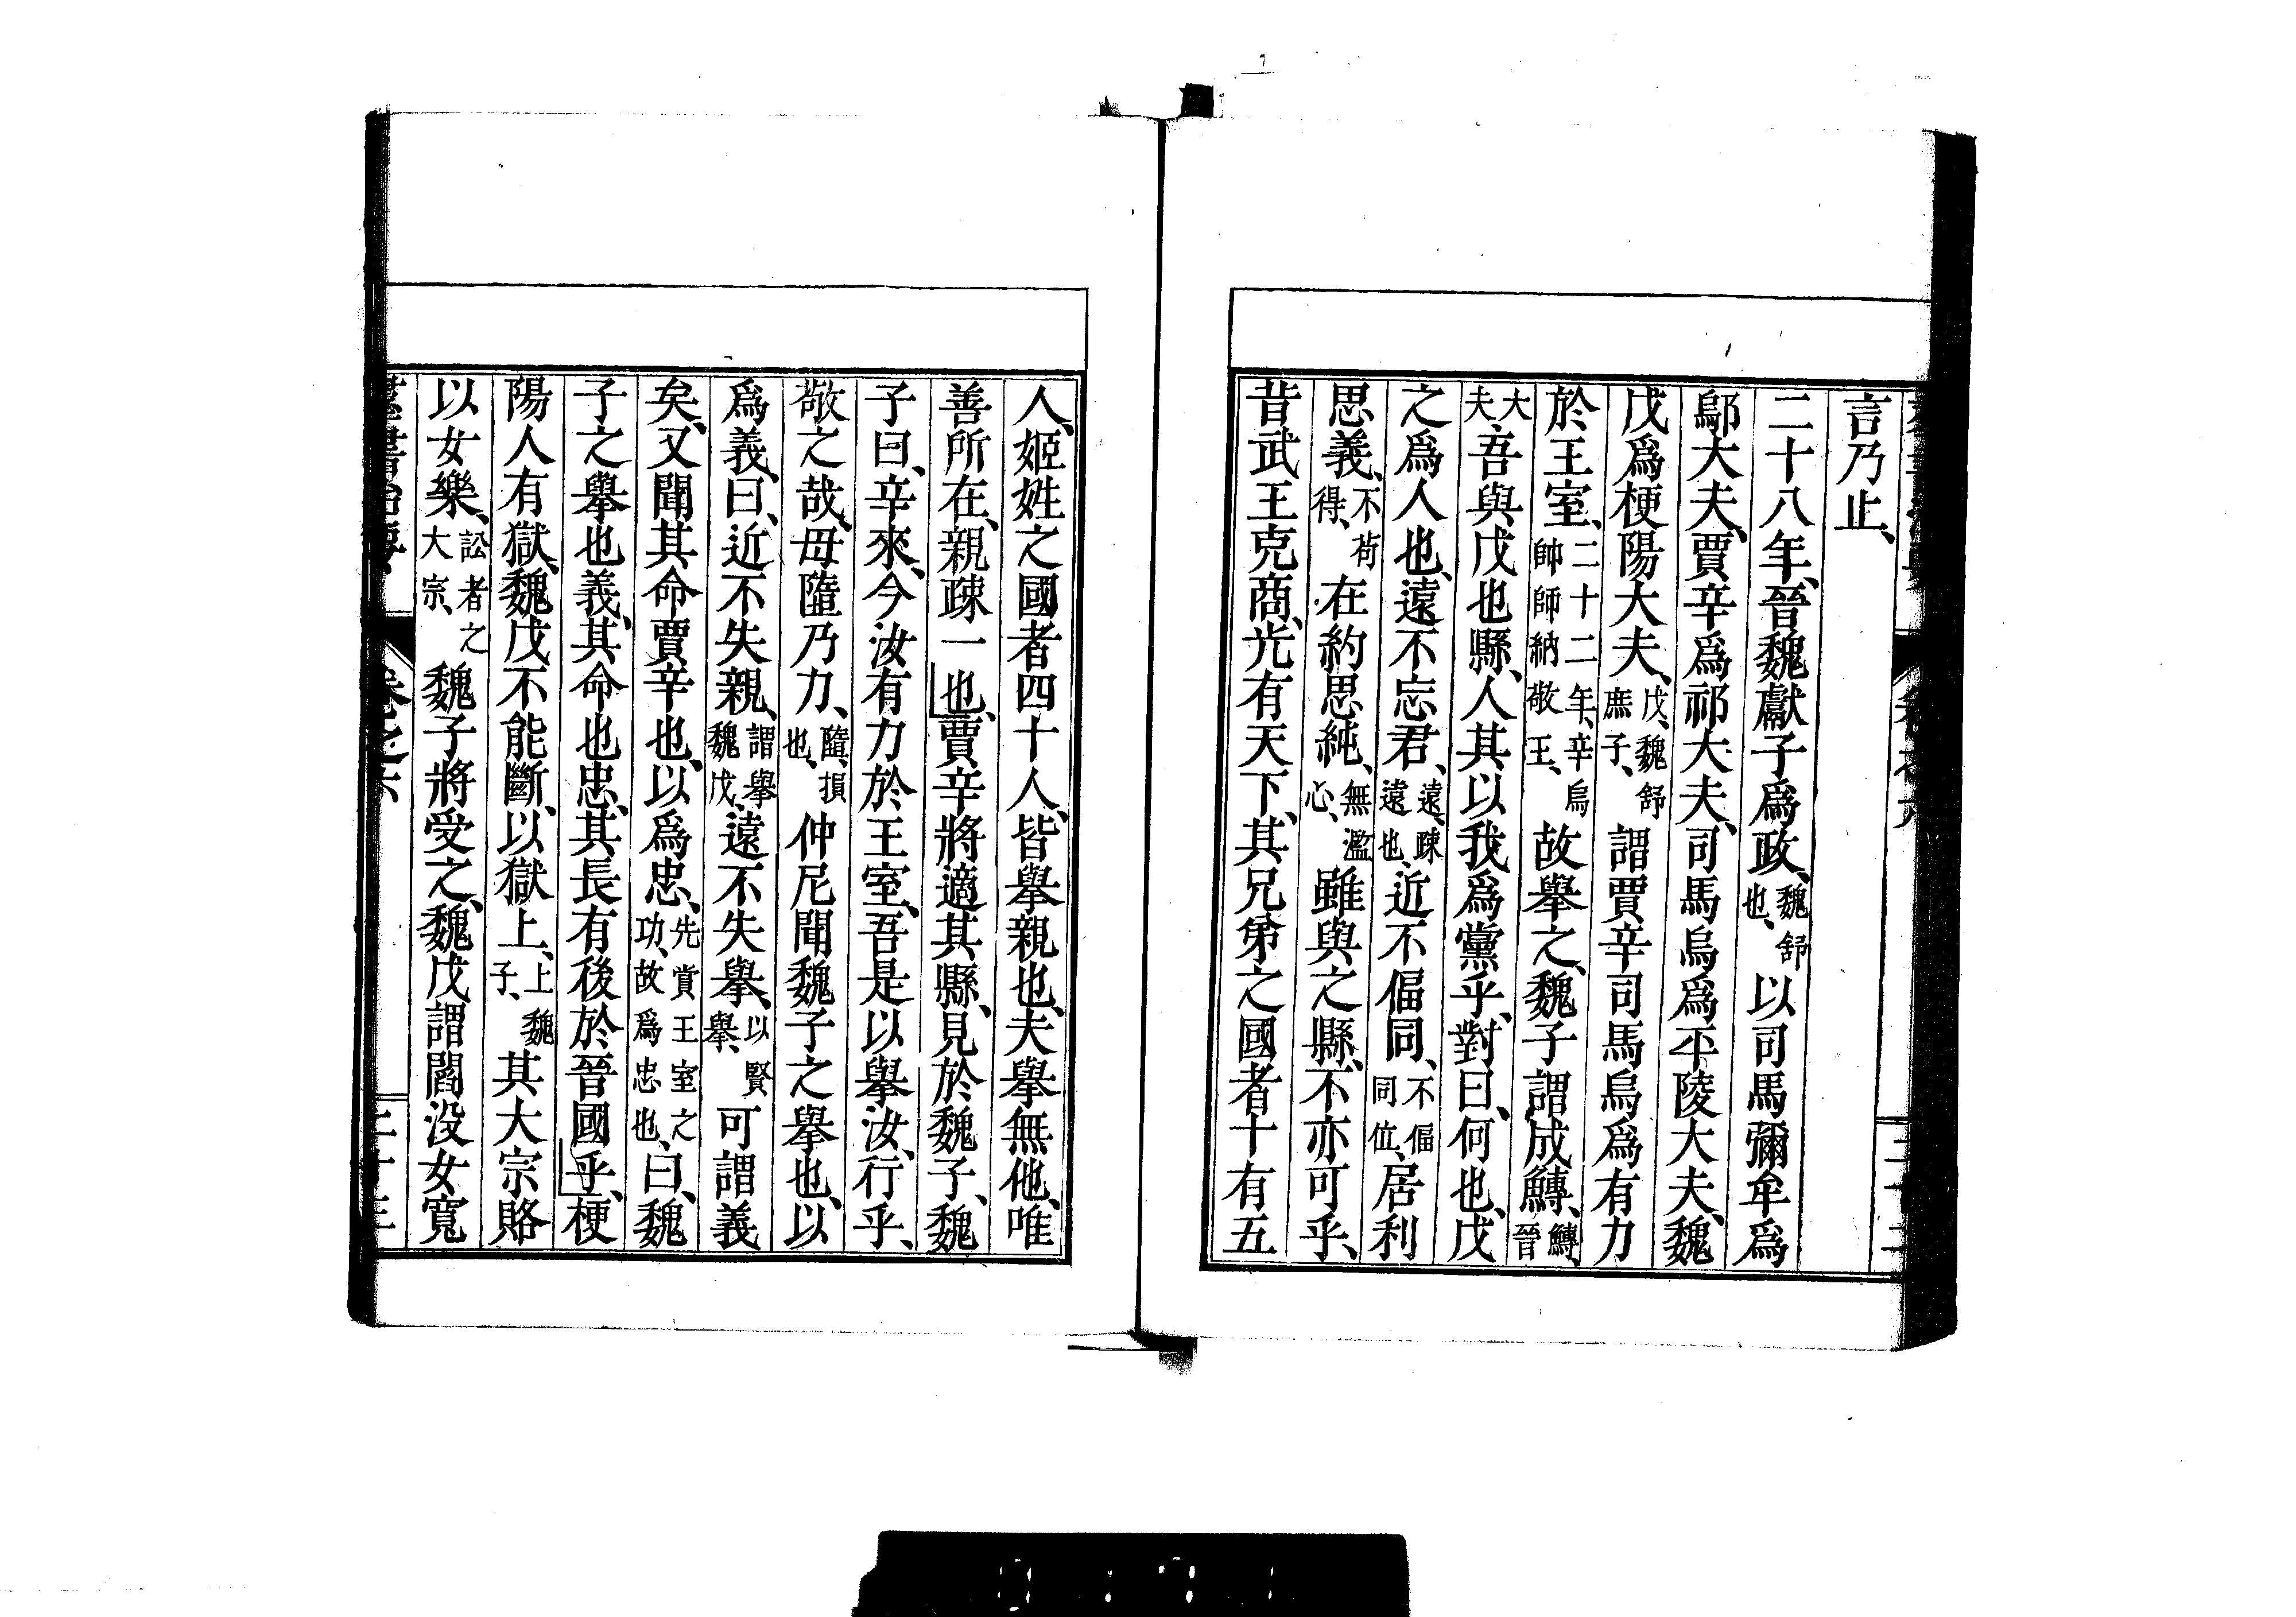 言乃止、
二十八年、晉魏獻子爲政、魏舒也、以司馬彌牟爲
鄔大夫、賈辛爲祁大夫、司馬烏爲平陵大夫、魏
戊爲梗陽大夫、戊、魏舒庶子、謂賈辛司馬烏爲有力
於王室、二十二年、辛烏帥師納敬王、故擧之、魏子謂成鱄、鱄、晉
大夫、吾與戊也縣、人其以我爲黨乎、對曰、何也、戊
之爲人也、遠不忘君、遠、疎遠也、近不偪同、不偪同位、居利
思義、不苟得、在約思純、無濫心、雖與之縣、不亦可乎、
昔武王克商、光有天下、其兄弟之國者十有五
人、姬姓之國者四十人、皆擧親也、夫擧無他、唯
善所在、親疎一也、賈辛將適其縣、見於魏子、魏
子曰、辛來、今汝有力於王室、吾是以擧汝、行乎、
敬之哉、毋墮乃力、墮、損也、仲尼聞魏子之擧也、以
爲義、曰、近不失親、謂擧魏戊、遠不失擧、以賢擧、可謂義
矣、又聞其命賈辛也、以爲忠、先賞王室之功、故爲忠也、曰、魏
子之擧也義、其命也忠、其長有後於晉國乎、梗
陽人有獄、魏戊不能斷、以獄上、上魏子、其大宗賂
以女樂、訟者之大宗、魏子將受之、魏戊謂閻没女寬
卷之六